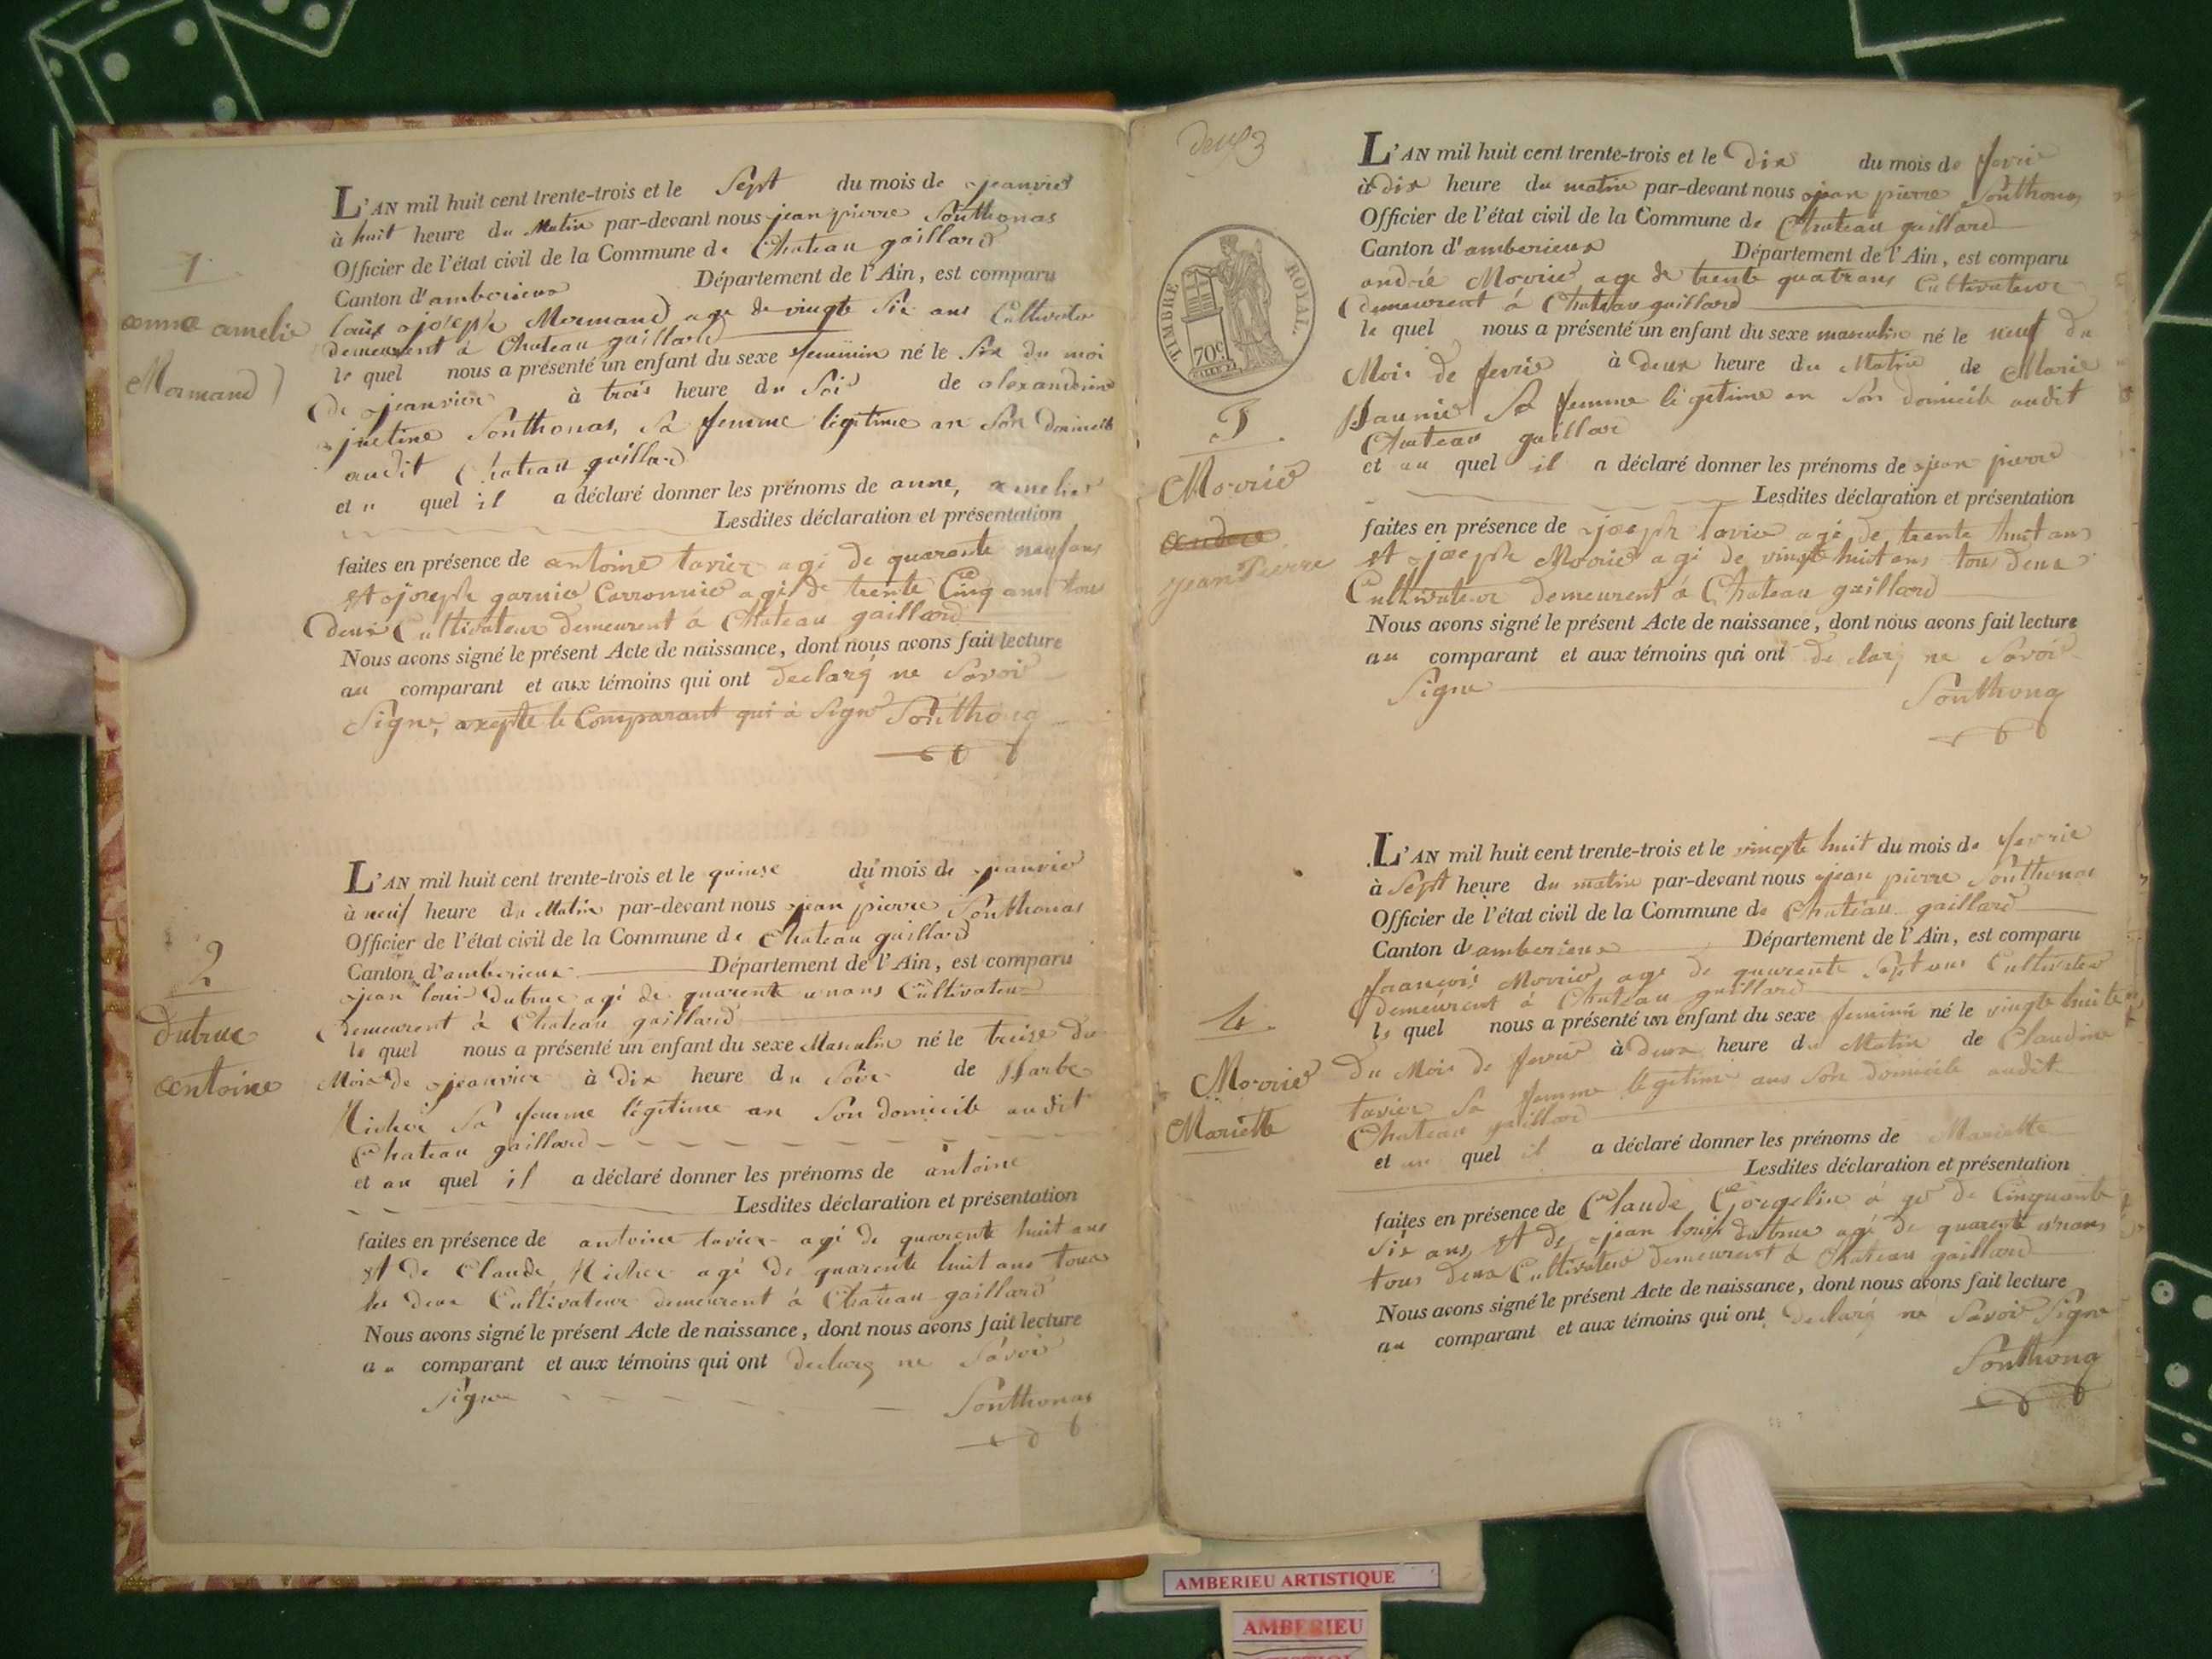 1
anne amelie
Mermand
L'AN mil huit cent trente-trois et le Sept du mois de jeanvier
à huit heure du Matin par-devant nous jean pierre Sonthonas
Officier de l'état civil de la Commune de Chateau gaillard
Canton d'amberieux Département de l'Ain, est comparu
louis joseph Mermand age de vingte Six ans Cultivateur
demeurent à Chateau gaillard
le quel nous a présenté un enfant du sexe feminin né le Six du moi
de jeanvier à trois heure du Soir de alexandrine
justine Sonthonas, Sa femme légitime an Son domicile
audit Chateau gaillard
et a quel il a déclaré donner les prénoms de anne, amelie
Lesdites déclaration et présentation
faites en présence de antoine tavier agé de quarente neuf ans
et joseph garnier agé de trente Cinq ans tous
deux Cultivateur demeurent à Chateau gaillard
Nous avons signé le présent Acte de naissance, dont nous avons fait lecture
au comparant et aux témoins qui ont declaré ne Savoir
Signe, axepte le Comparant qui à Signé Sonthonas
2
dutruc
antoine
L'AN mil huit cent trente-trois et le quinse du mois de jeanvier
à neuf heure du Matin par-devant nous jean pierre Sonthonas
Officier de l'état civil de la Commune de Chateau gaillard
Canton d'amberieux Département de l'Ain, est comparu
jean louis dutruc agé de quarente unans Cultivateur
demeurent à Chateau gaillard
le quel nous a présenté un enfant du sexe Masculin né le treise du
Mois de jeanvier à dix heure du Soir de Barbe
Sa femme légitime an Son domicile audit
Chateau gaillard
et au quel il a déclaré donner les prénoms de antoine
Lesdites déclaration et présentation
faites en présence de antoine tavier agé de quarente huit ans
et de Claude agé de quarente huit ans tous
les deux Cultivateur demeurent à Chateau gaillard
Nous avons signé le présent Acte de naissance, dont nous avons fait lecture
au comparant et aux témoins qui ont declaré ne Savoir
signe Sonthonas
TIMBRE ROYAL.
70c
3
Morrier
andre
jean Pierre
L'AN mil huit cent trente-trois et le dix du mois de fevrier
à dix heure du matin par-devant nous jean pierre Sonthonas
Officier de l'état civil de la Commune de Chateau gaillard
Canton d'amberieux Département de l'Ain, est comparu
andré Morrier age de trente quatrans Cultivateur
demeurent à Chateau gaillard
le quel nous a présenté un enfant du sexe masculin né le neuf du
Mois de fevrier à deux heure du Matin de Marie
Sa femme légitime an Son domicile audit
Chateau gaillard
et au quel il a déclaré donner les prénoms de jean pierre
Lesdites déclaration et présentation
faites en présence de joseph tavier agé de trente huit ans
et joseph Morrier agé de vingt huit ans tous deux
Cultivateur demeurent à Chateau gaillard
Nous avons signé le présent Acte de naissance, dont nous avons fait lecture
au comparant et aux témoins qui ont declaré ne Savoir
Signe Sonthonas
4
Morrier
Mariette
L'AN mil huit cent trente-trois et le vingte huit du mois de fevrier
à Sept heure du matin par-devant nous jean pierre Sonthonas
Officier de l'état civil de la Commune de Chateau gaillard
Canton d'amberieux Département de l'Ain, est comparu
francois Morrier age de quarente Sept ans Cultivateur
demeurent à Chateau gaillard
le quel nous a présenté un enfant du sexe feminin né le vingte huite
du Mois de fevrier à deux heure du Matin de Claudine
tavier Sa femme légitime ans Son domicile audit
Chateau gaillard
et au quel il a déclaré donner les prénoms de Mariette
Lesdites déclaration et présentation
faites en présence de Claude agé de Cinquante
Six ans et de jean louis dutruc agé de quarente unans
tous deux Cultivateur demeurent à Chateau gaillard
Nous avons signé le présent Acte de naissance, dont nous avons fait lecture
au comparant et aux témoins qui ont declaré ne Savoir Signe
Sonthonas
AMBERIEU ARTISTIQUE
AMBERIEU